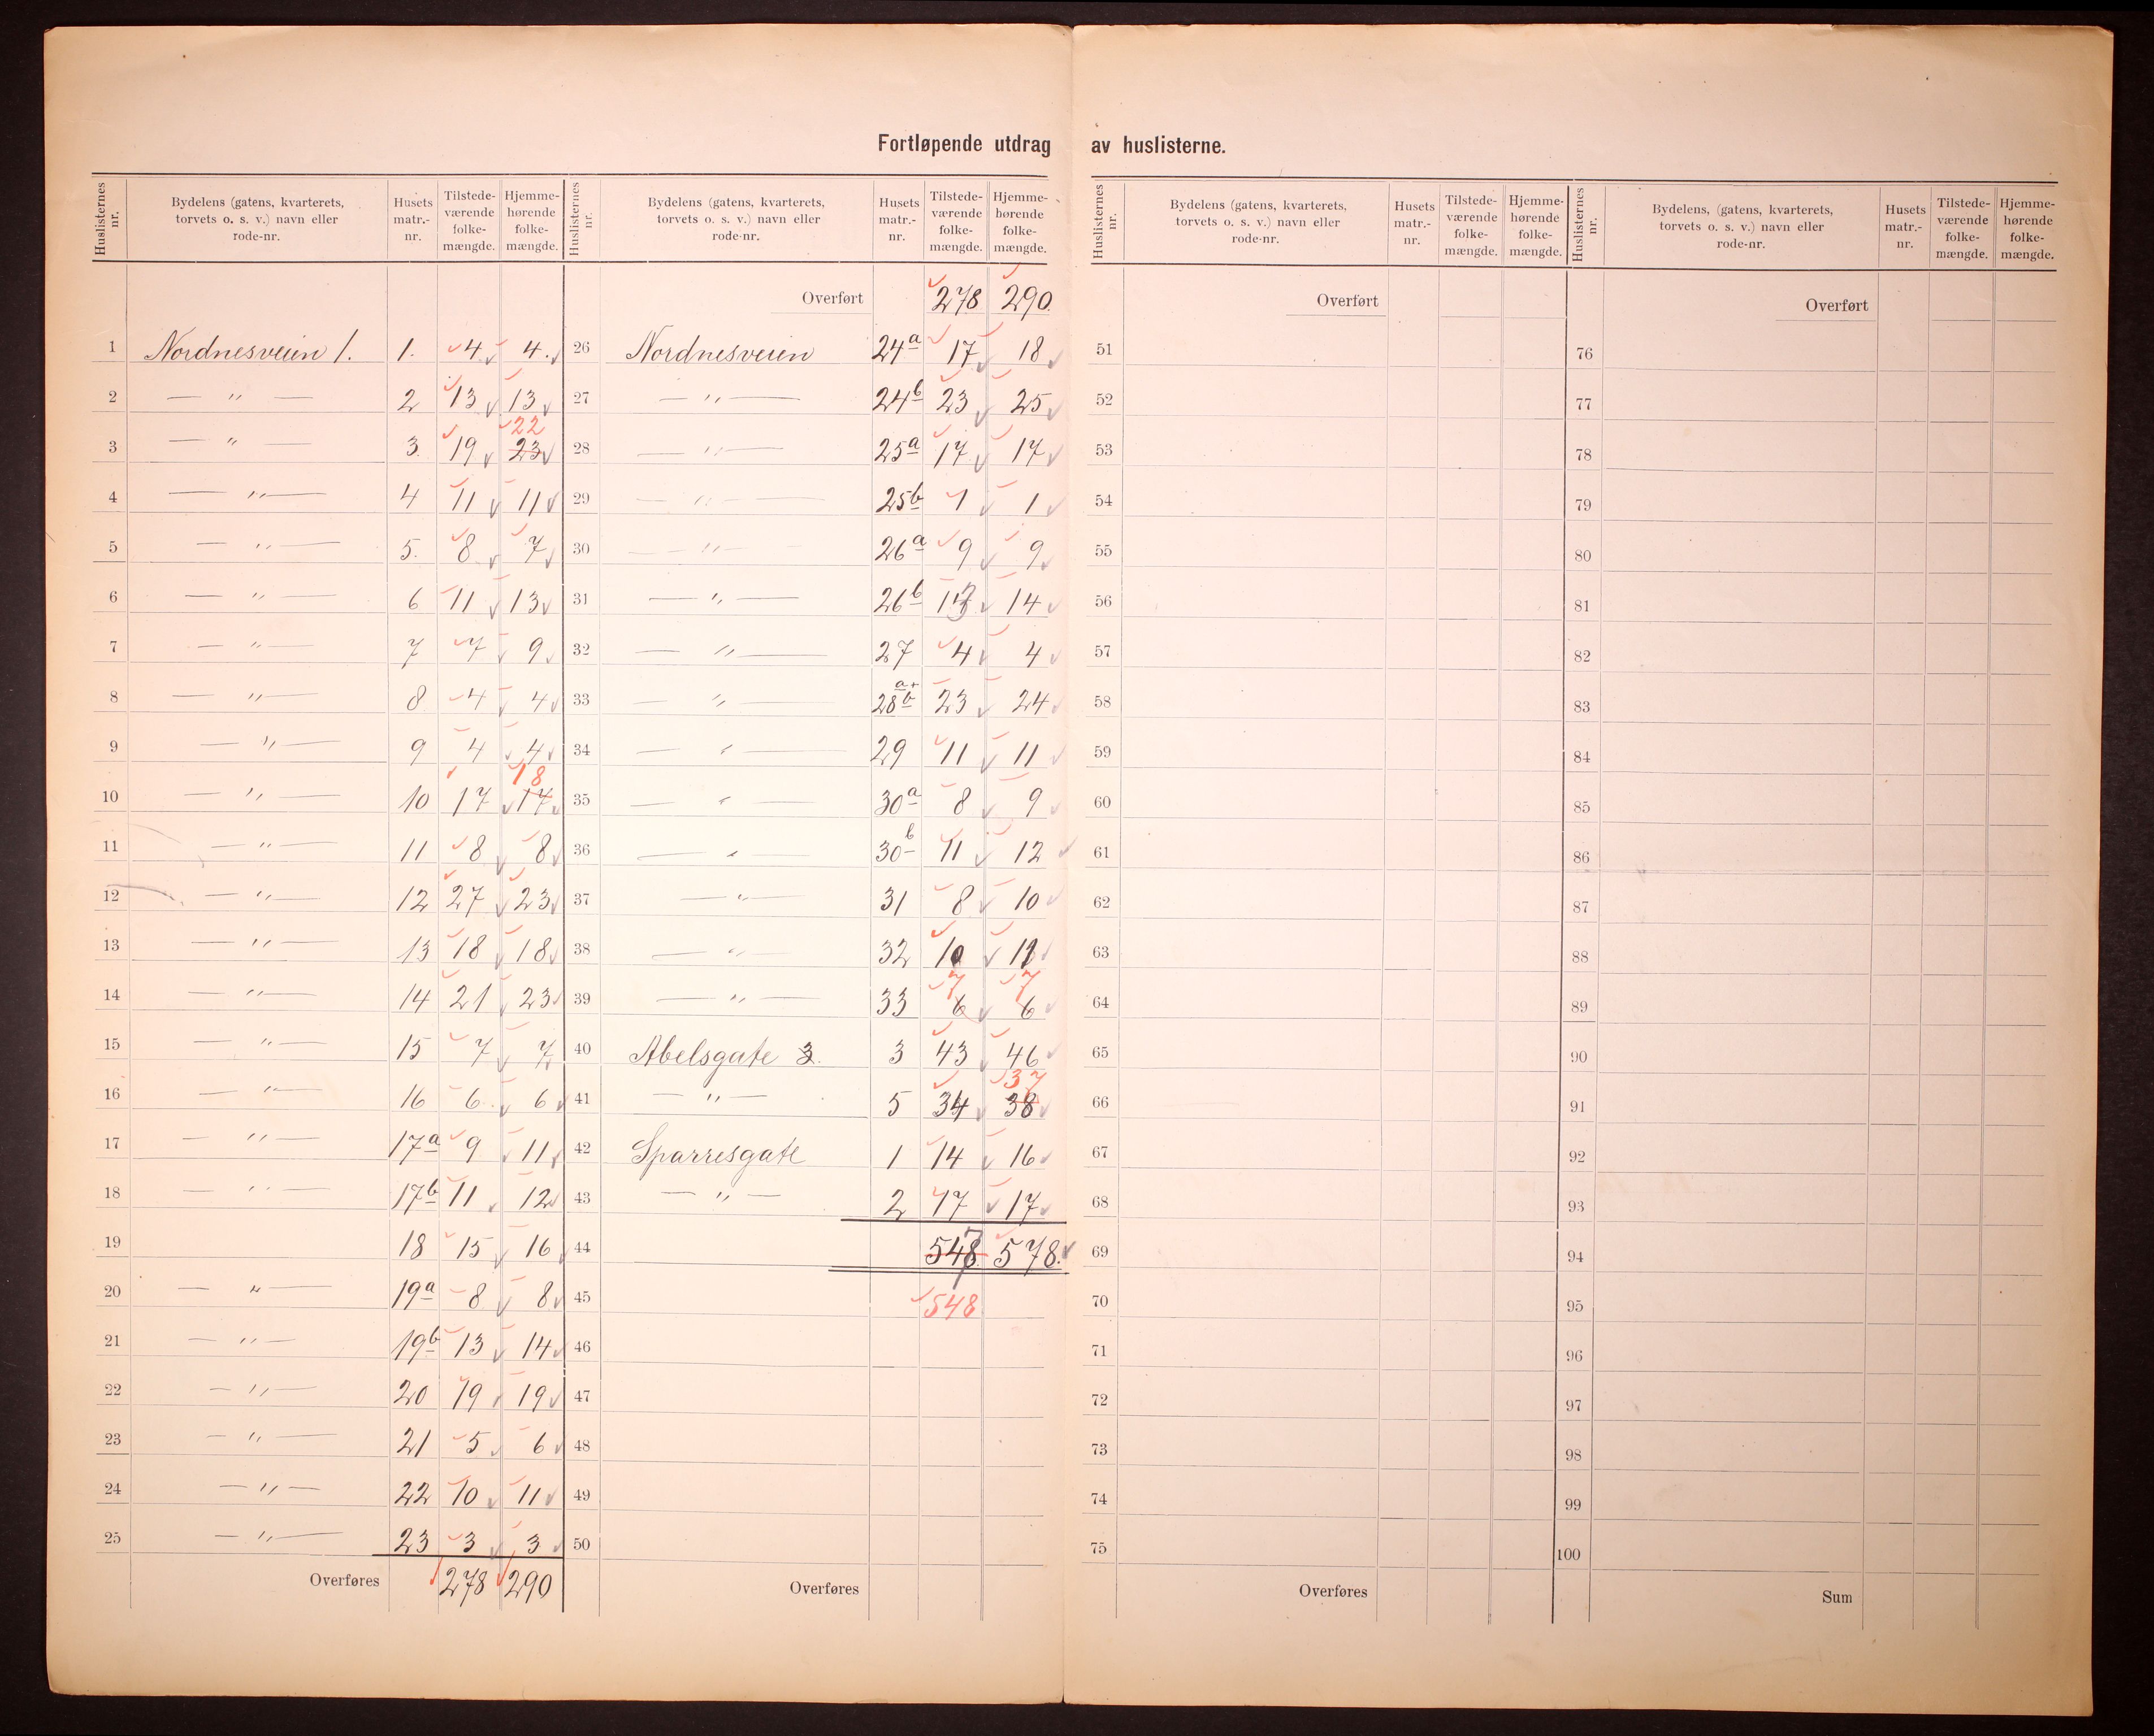 Fortløpende utdrag av huslisterne.
Huslisternes nr. | Bydelens (gatens, kvarterets, torvets o. s. v.) navn eller rode-nr. | Husets matr.-nr. | Tilstede-værende folke-mængde. | Hjemme-hørende folke-mængde.
1 Nordnesveien 1. 1. 4 4.
2 — „ — 2 13 13
3 — „ — 3. 19 22 23
4 — „ — 4 11 11
5 — „ — 5. 8 7
6 — „ — 6 11 13
7 — „ — 7 7 9
8 — „ — 8 4 4
9 — „ — 9 4 4
10 — „ — 10 17 18 17
11 — „ — 11 8 8
12 — „ — 12 27 23
13 — „ — 13 18 18
14 — „ — 14 21 23
15 — „ — 15 7 7
16 — „ — 16 6 6
17 — „ — 17a 9 11
18 — „ — 17b 11 12
19 18 15 16
20 — „ — 19a 8 8
21 — „ — 19b 13 14
22 — „ — 20 19 19
23 — „ — 21 5 6
24 — „ — 22 10 11
25 — „ — 23 3 3
Overføres 278 290
Huslisternes nr. | Bydelens (gatens, kvarterets, torvets o. s. v.) navn eller rode-nr. | Husets matr.-nr. | Tilstede-værende folke-mængde. | Hjemme-hørende folke-mængde.
Overført 278 290
26 Nordnesveien 24a 17 18
27 — „ — 24b 23 25
28 — „ — 25a 17 17
29 — „ — 25b 1 1
30 — „ — 26a 9 9
31 — „ — 26b 13 14
32 — „ — 27 4 4
33 — „ — 28 a+b 23 24
34 — „ — 29 11 11
35 — „ — 30a 8 9
36 — „ — 30b 11 12
37 — „ — 31 8 10
38 — „ — 32 10 11
39 — „ — 33 7 6 7 6
40 Abelsgate 3. 3 43 46
41 — „ — 5 34 37 38
42 Sparresgate 1 14 16
43 — „ — 2 17 17
44 548 578.
45 548
46
47
48
49
50
Overføres
Huslisternes nr. | Bydelens (gatens, kvarterets, torvets o. s. v.) navn eller rode-nr. | Husets matr.-nr. | Tilstede-værende folke-mængde. | Hjemme-hørende folke-mængde.
Overført
51
52
53
54
55
56
57
58
59
60
61
62
63
64
65
66
67
68
69
70
71
72
73
74
75
Overføres
Huslisternes nr. | Bydelens, (gatens, kvarterets, torvets o. s. v.) navn eller rode-nr. | Husets matr.-nr. | Tilstede-værende folke-mængde. | Hjemme-hørende folke-mængde.
Overført
76
77
78
79
80
81
82
83
84
85
86
87
88
89
90
91
92
93
94
95
96
97
98
99
100
Sum